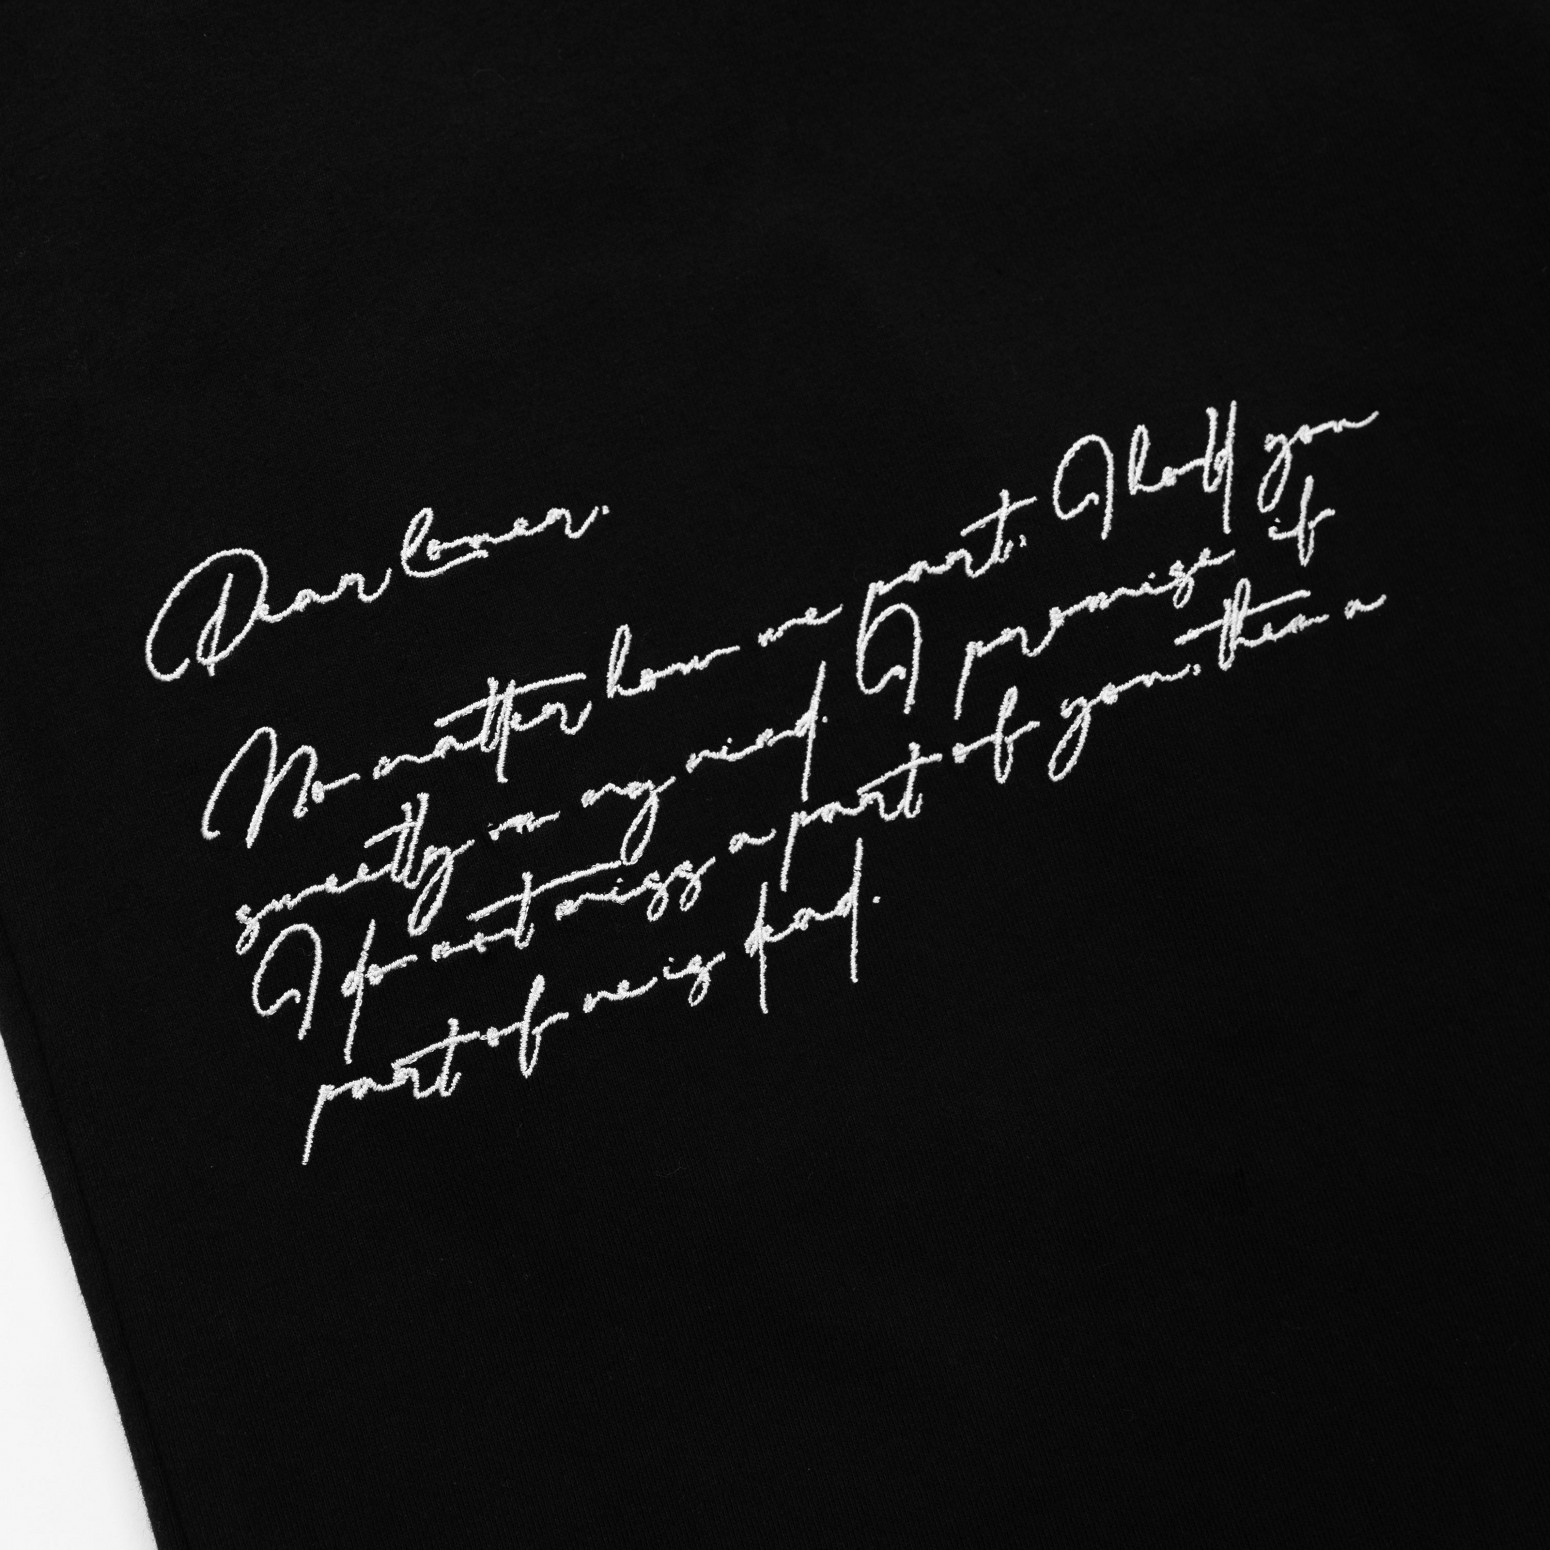 Dear loner.
No matter how we part, I hold you
sweetly in my mind. I promise if
I do not miss a part of you, then a
part of me is dead.